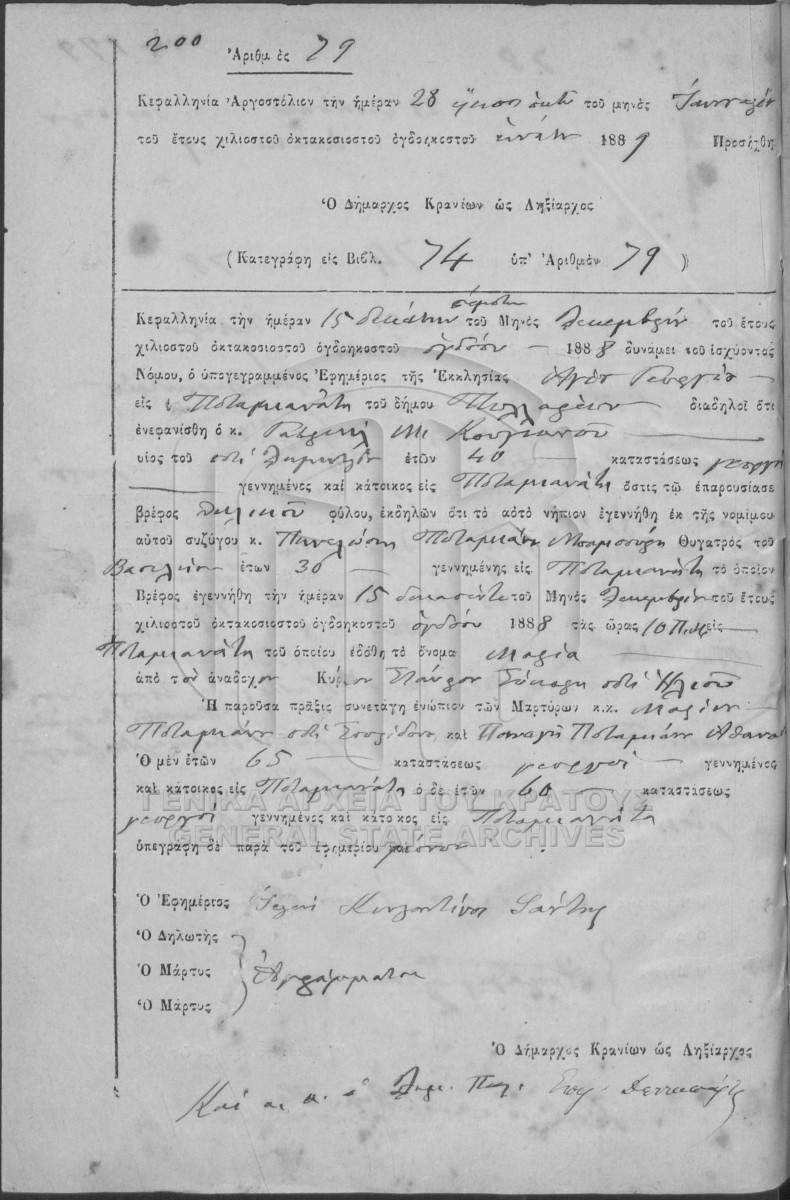 200
Ἀριθμὸς 79
Κεφαλληνία Ἀργοστόλιον τὴν ἡμέραν 28 εἴκοσι ὀκτὼ τοῦ μηνὸς Ἰανουαρίου
τοῦ ἔτους χιλιοστοῦ ὀκτακοσιοστοῦ ὀγδοηκοστοῦ ἐννάτου 1889 Προσήχθη
Ὁ Δήμαρχος Κρανίων ὡς Ληξίαρχος
(Κατεγράφη εἰς Βιβλ. 74 ὑπ' Ἀριθμὸν 79)
Κεφαλληνία τὴν ἡμέραν 15 δεκάτην πέμπτην τοῦ Μηνὸς Δεκεμβρίου τοῦ ἔτους
χιλιοστοῦ ὀκτακοσιοστοῦ ὀγδοηκοστοῦ ὀγδόου 1888 δυνάμει τοῦ ἰσχύοντος
Νόμου, ὁ ὑπογεγραμμένος Ἐφημέριος τῆς Ἐκκλησίας Ἁγίου Γεωργίου
εἰς Ποταμιανάτα τοῦ δήμου Πυλλαρέων διαδηλοῖ ὅτι
ἐνεφανίσθη ὁ κ.
υἱὸς τοῦ ποτὲ ἐτῶν 40 καταστάσεως γεωργὸς
γεννημένος καὶ κάτοικος εἰς Ποταμιανάτα ὅστις τῷ ἐπαρουσίασε
βρέφος θηλυκοῦ φύλου, ἐκδηλῶν ὅτι τὸ αὐτὸ νήπιον ἐγεννήθη ἐκ τῆς νομίμου
αὐτοῦ συζύγου κ. Πηνελώπης Ποταμιάνου Θυγατρὸς τοῦ
Βασιλείου ἐτῶν 30 γεννημένης εἰς Ποταμιανάτα τὸ ὁποῖον
Βρέφος ἐγεννήθη τὴν ἡμέραν 15 δεκαπέντε τοῦ Μηνὸς Δεκεμβρίου τοῦ ἔτους
χιλιοστοῦ ὀκτακοσιοστοῦ ὀγδοηκοστοῦ ὀγδόου 1888 τὰς ὥρας 10 Π.Μ. εἰς
Ποταμιανάτα τοῦ ὁποίου ἐδόθη τὸ ὄνομα Μαρία
ἀπὸ τὸν ἀνάδοχον Κύριον Σταῦρον ποτὲ Ἠλιοῦ
Ἡ παροῦσα πρᾶξις συνετάγη ἐνώπιον τῶν Μαρτύρων κ.κ. Μαρίνου
Ποταμιάνου ποτὲ Σπυρίδωνος καὶ Παναγῆ Ποταμιάνου Ἀθανασ
Ὁ μὲν ἐτῶν 65 καταστάσεως γεωργοὶ γεννημένος
καὶ κάτοικος εἰς Ποταμιανάτα ὁ δὲ ἐτῶν 60 καταστάσεως
γεωργοὶ γεννημένος καὶ κάτοκος εἰς Ποταμιανάτα
ὑπεγράφη δὲ παρὰ τοῦ ἐφημερίου μόνον
ΓΕΝΙΚΑ ΑΡΧΕΙΑ ΤΟΥ ΚΡΑΤΟΥΣ
GENERAL STATE ARCHIVES
Ὁ Ἐφημέριος Ἱερεὺς Κωνσταντῖνος
Ὁ Δηλωτὴς
Ὁ Μάρτυς Ἀγράμματοι
Ὁ Μάρτυς
Ὁ Δήμαρχος Κρανίων ὡς Ληξίαρχος